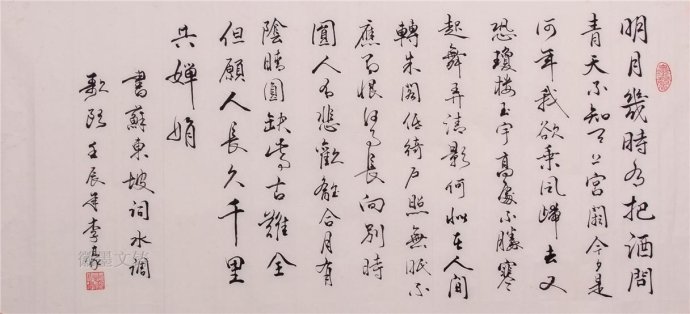 明月幾時有把酒問
青天不知天上宮闕今夕是
何年我欲乘風歸去又
恐瓊樓玉宇高處不勝寒
起舞弄清影何似在人間
轉朱閣低綺戶照無眠不
應有恨何事長向別時
圓人有悲歡離合月有
陰晴圓缺此事古難全
但願人長久千里
共嬋娟
書蘇東坡詞水調
歌頭壬辰年李